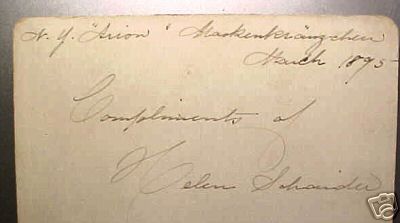 N. Y. "Arion" Maskenkränzchen
March 1895
Compliments of
Helen Schaider